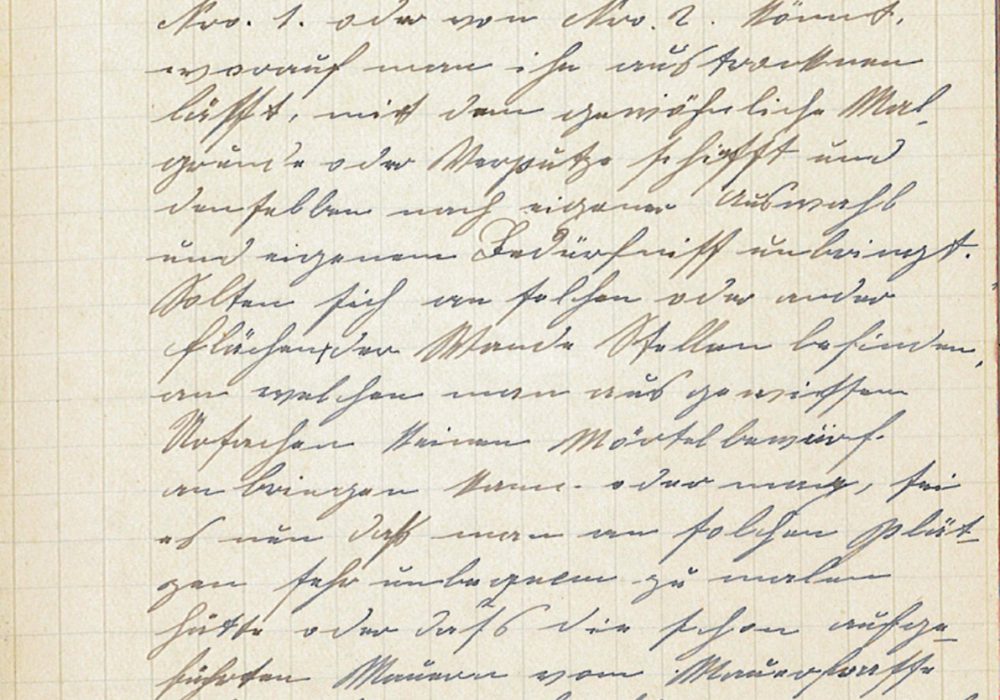 Nro. 1. oder von Nro. 2. könnt,
worauf man ihn austrocknen
läßt, mit dem gewöhnliche Mal-
grunde oder Verputze schifft und
denselben nach eigener Auswahl
und eigenem Bedürfniss anbringt.
Solten sich an solchen oder ander
flächen der Wande Stellen befinden,
an welchen man aus gewissen
Ursachen keinen Mörtelbewürf
anbringen kann oder mag, sei
es nun daß man an solchen plät-
zen sehr unbequem zu malen
hätte oder daß die schon aufge-
führten Mauern vom Mauersraße